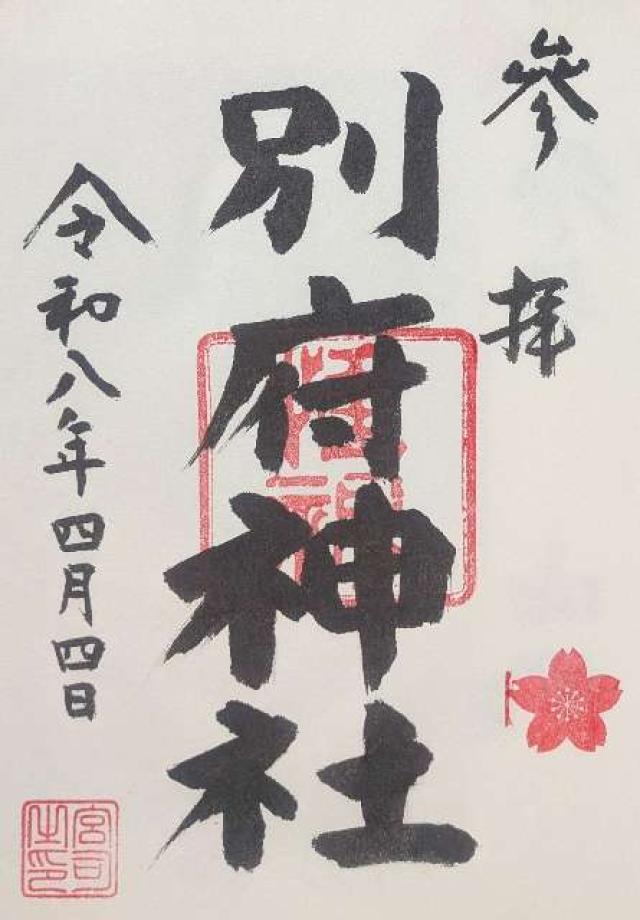 參拝
別府神社
令和八年四月四日
宮司之印